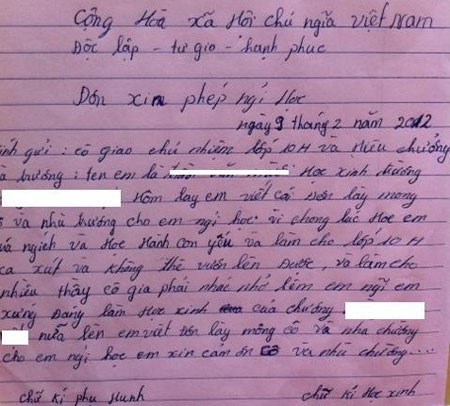 Cộng Hòa xã Hội chủ ngĩa việt Nam
Độc lập - tự gio - hạnh phúc
Đơn xin phép ngỉ Học
ngày 9 tháng 2 năm 2012
ính gửi : cô giao chủ nhiệm lớp 10 H và Hiệu chưởng
à trường : tên em là Học xinh trường
Hôm lay em viết cái đơn lày mong
và nhà trường cho em ngỉ học vì chong lúc Học em
uá ngịch và Học Hành con yếu và làm cho lớp 10 H
xa xút và không thể vươn lên Được, và làm cho
nhiều thầy cô gia phải nhac nhở lêm em ngĩ em
xưng đang làm Học xinh của chường
nữa lên em viết đơn lày mông cô và nhà chường
cho em ngỉ học em xin cảm ơn cô và nhà chường....
chữ kí phụ Huynh chữ kí Học xinh